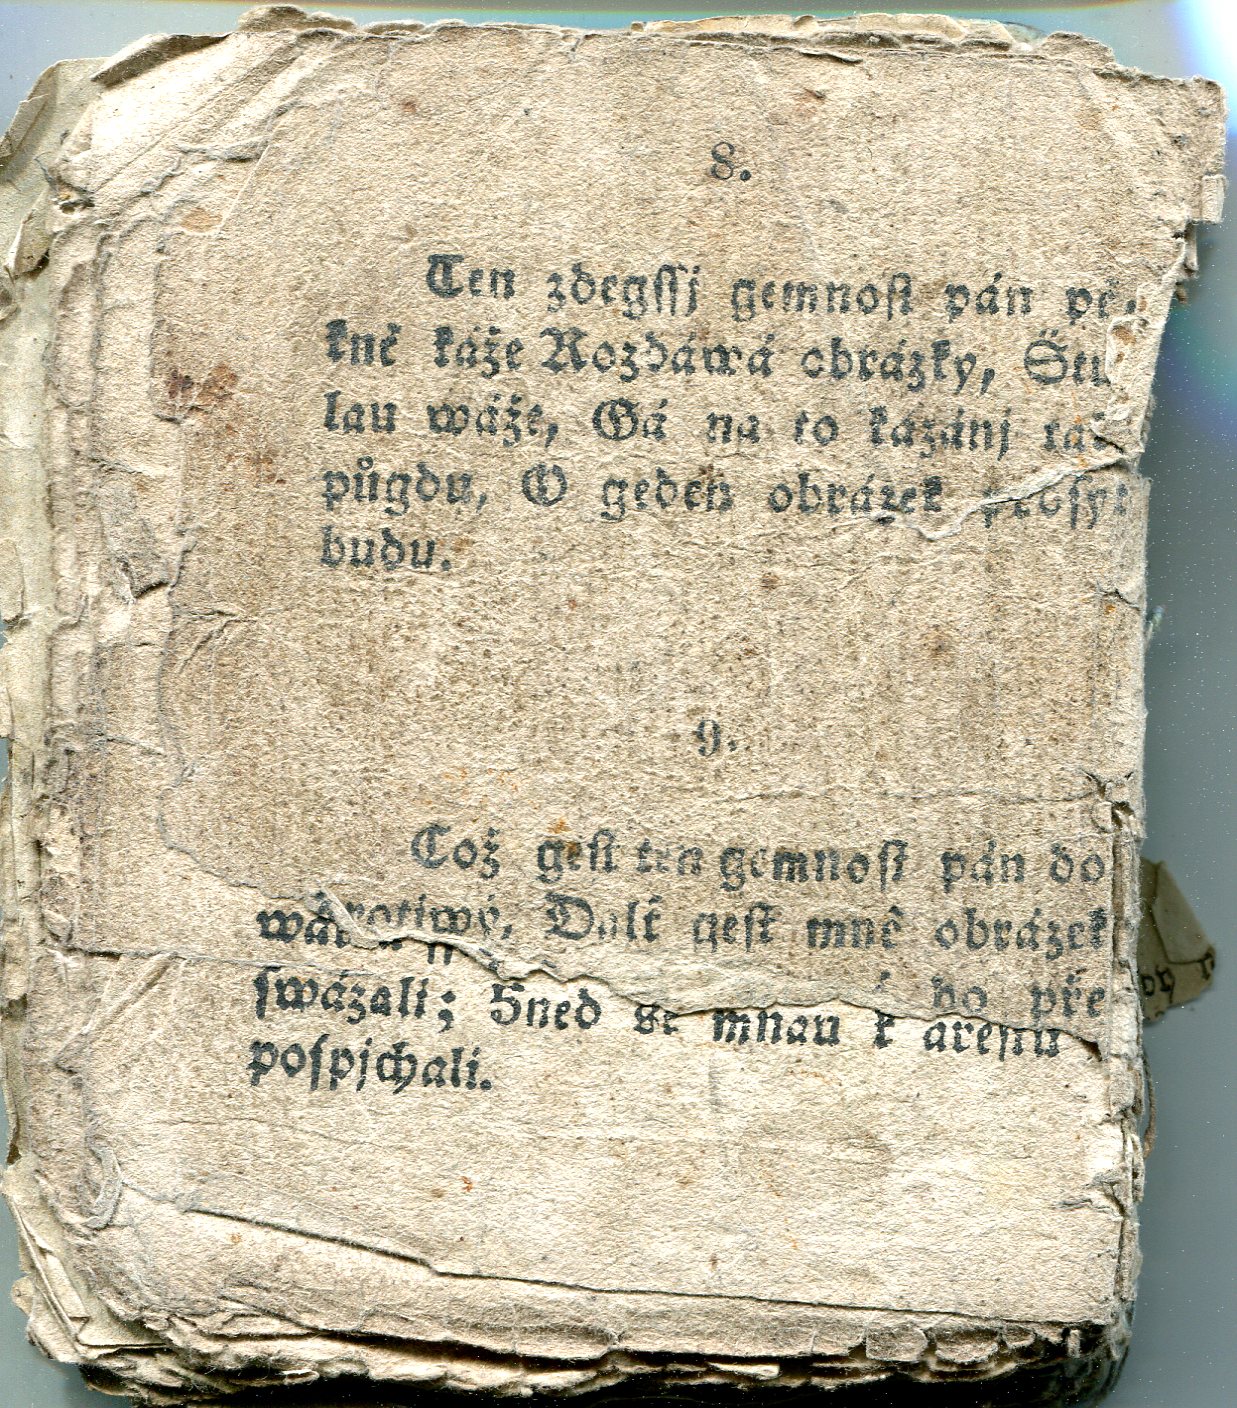 8.
Ten zdegſſj gemnoſt pán pě-
kně káže Rozdáwá obrázky,
lau wáže, Gá na to kázánj
půgdu, O geden obrázek
budu.
9.
Což geſt ten gemnoſt pán do
geſt mně obrázek
do pře
ſwázali; Hned se mnau k areſtu
poſpjchali.